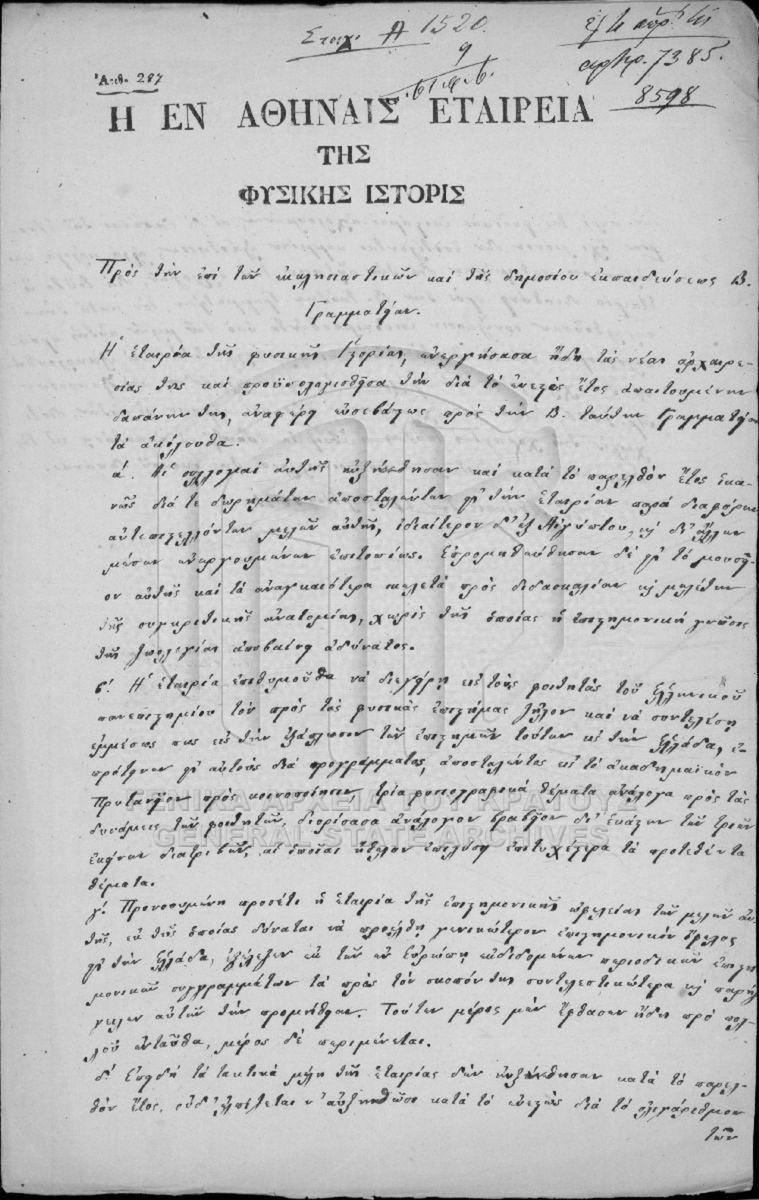 Στοιχ. Α 1520.
9
ἐλ. 4 απρ.
αριθ. 7385.
8598
Ἀριθ. 287
Η ΕΝ ΑΘΗΝΑΙΣ ΕΤΑΙΡΕΙΑ
ΤΗΣ
ΦΥΣΙΚΗΣ ΙΣΤΟΡΙΣ
Πρὸς τὴν ἐπὶ τῶν ἐκκλησιαστικῶν καὶ τῆς δημοσίου ἐκπαιδεύσεως Β.
Γραμματείαν.
Ἡ ἑταιρεία τῆς φυσικῆς Ἱστορίας, ἐνεργήσασα ἤδη τὰς νέας ἀρχαιρε-
σίας της καὶ προϋπολογισθεῖσα τὴν διὰ τὸ ἐνεχὲς ἔτος ἀπαιτουμένην
δαπάνην της, ἀναφέρει εὐσεβάστως πρὸς τὴν Β. ταύτην Γραμματείαν
τὰ ἀκόλουθα.
α΄. Αἱ συλλογαὶ αὐτῆς ηὐξήνθησαν καὶ κατὰ τὸ παρελθὸν ἔτος ἱκα-
νῶς διά τε δωρημάτων ἀποσταλέντων εἰς τὴν ἑταιρίαν παρὰ διαφόρων
ἀντεπιστελλόντων μελῶν αὐτῆς, ἰδιαίτερον δ' ἐξ Αἰγύπτου, καὶ δι' ἄλλων
μέσων ἐνεργουμένων ἐπιτοπίως. Ἐπρομηθεύθησαν δὲ εἰς τὸ μουσεῖ-
ον αὐτῆς καὶ τὰ ἀναγκαιότερα σκελετὰ πρὸς διδασκαλίαν καὶ μελέτην
τῆς συγκριτικῆς ἀνατομίας, χωρὶς τῆς ὁποίας ἡ ἐπιστημονικὴ γνῶσις
τῆς ζωολογίας ἀποβαίνει ἀδύνατος.
β΄. Ἡ ἑταιρία ἐπιθυμοῦσα νὰ διεγείρῃ εἰς τοὺς φοιτητὰς τοῦ Ἑλληνικοῦ
πανεπιστημίου τὸν πρὸς τὰς φυσικὰς ἐπιστήμας ζῆλον καὶ νὰ συντελέσῃ
ἐμμέσως πως εἰς τὴν ἐξάπλωσιν τῶν ἐπιστημῶν τούτων εἰς τὴν Ἑλλάδα, ἐ-
πρότεινεν εἰς αὐτοὺς διὰ προγράμματος, ἀποσταλέντος εἰς τὸ ἀκαδημαϊκὸν
Πρυτανεῖον πρὸς κοινοποίησιν τρία φυσιογραφικὰ θέματα ἀνάλογα πρὸς τὰς
δυνάμεις τῶν φοιτητῶν, διορίσασα ἀνάλογον βραβεῖον δι' ἑκάστην τῶν τριῶν
ἐκείνων διατριβῶν, αἱ ὁποῖαι ἤθελον ἐπιλύσῃ ἐπιτυχέστερα τὰ προτεθέντα
θέματα.
γ΄. Προνοουμένη προσέτι ἡ ἑταιρία τῆς ἐπιστημονικῆς ὠφελείας τῶν μελῶν αὐ-
τῆς, ἐκ τῆς ὁποίας δύναται νὰ προέλθῃ γενικώτερον ἐπιστημονικὸν ὄφελος
εἰς τὴν Ἑλλάδα, ἐξέλεξεν ἐκ τῶν ἐν Εὐρώπῃ ἐκδιδομένων περιοδικῶν ἐπιστη-
μονικῶν συγγραμμάτων τὰ πρὸς τὸν σκοπόν της συντελεστικώτερα καὶ παρήγ-
γειλεν αὐτῶν τὴν προμήθειαν. Τούτων μέρος μὲν ἔφθασεν ἤδη πρὸ πολ-
λοῦ ἐνταῦθα, μέρος δὲ περιμένεται.
δ΄. Ἐπειδὴ τὰ τακτικὰ μέλη τῆς ἑταιρίας δὲν ηὐξήνθησαν κατὰ τὸ παρελ-
θὸν ἔτος, οὐδ' ἐλπίζεται ν' αὐξηνθῶσι κατὰ τὸ ἐνεχὲς διὰ τὸ ὀλιγάριθμον
τῶν
ΓΕΝΙΚΑ ΑΡΧΕΙΑ ΤΟΥ ΚΡΑΤΟΥΣ
GENERAL STATE ARCHIVES